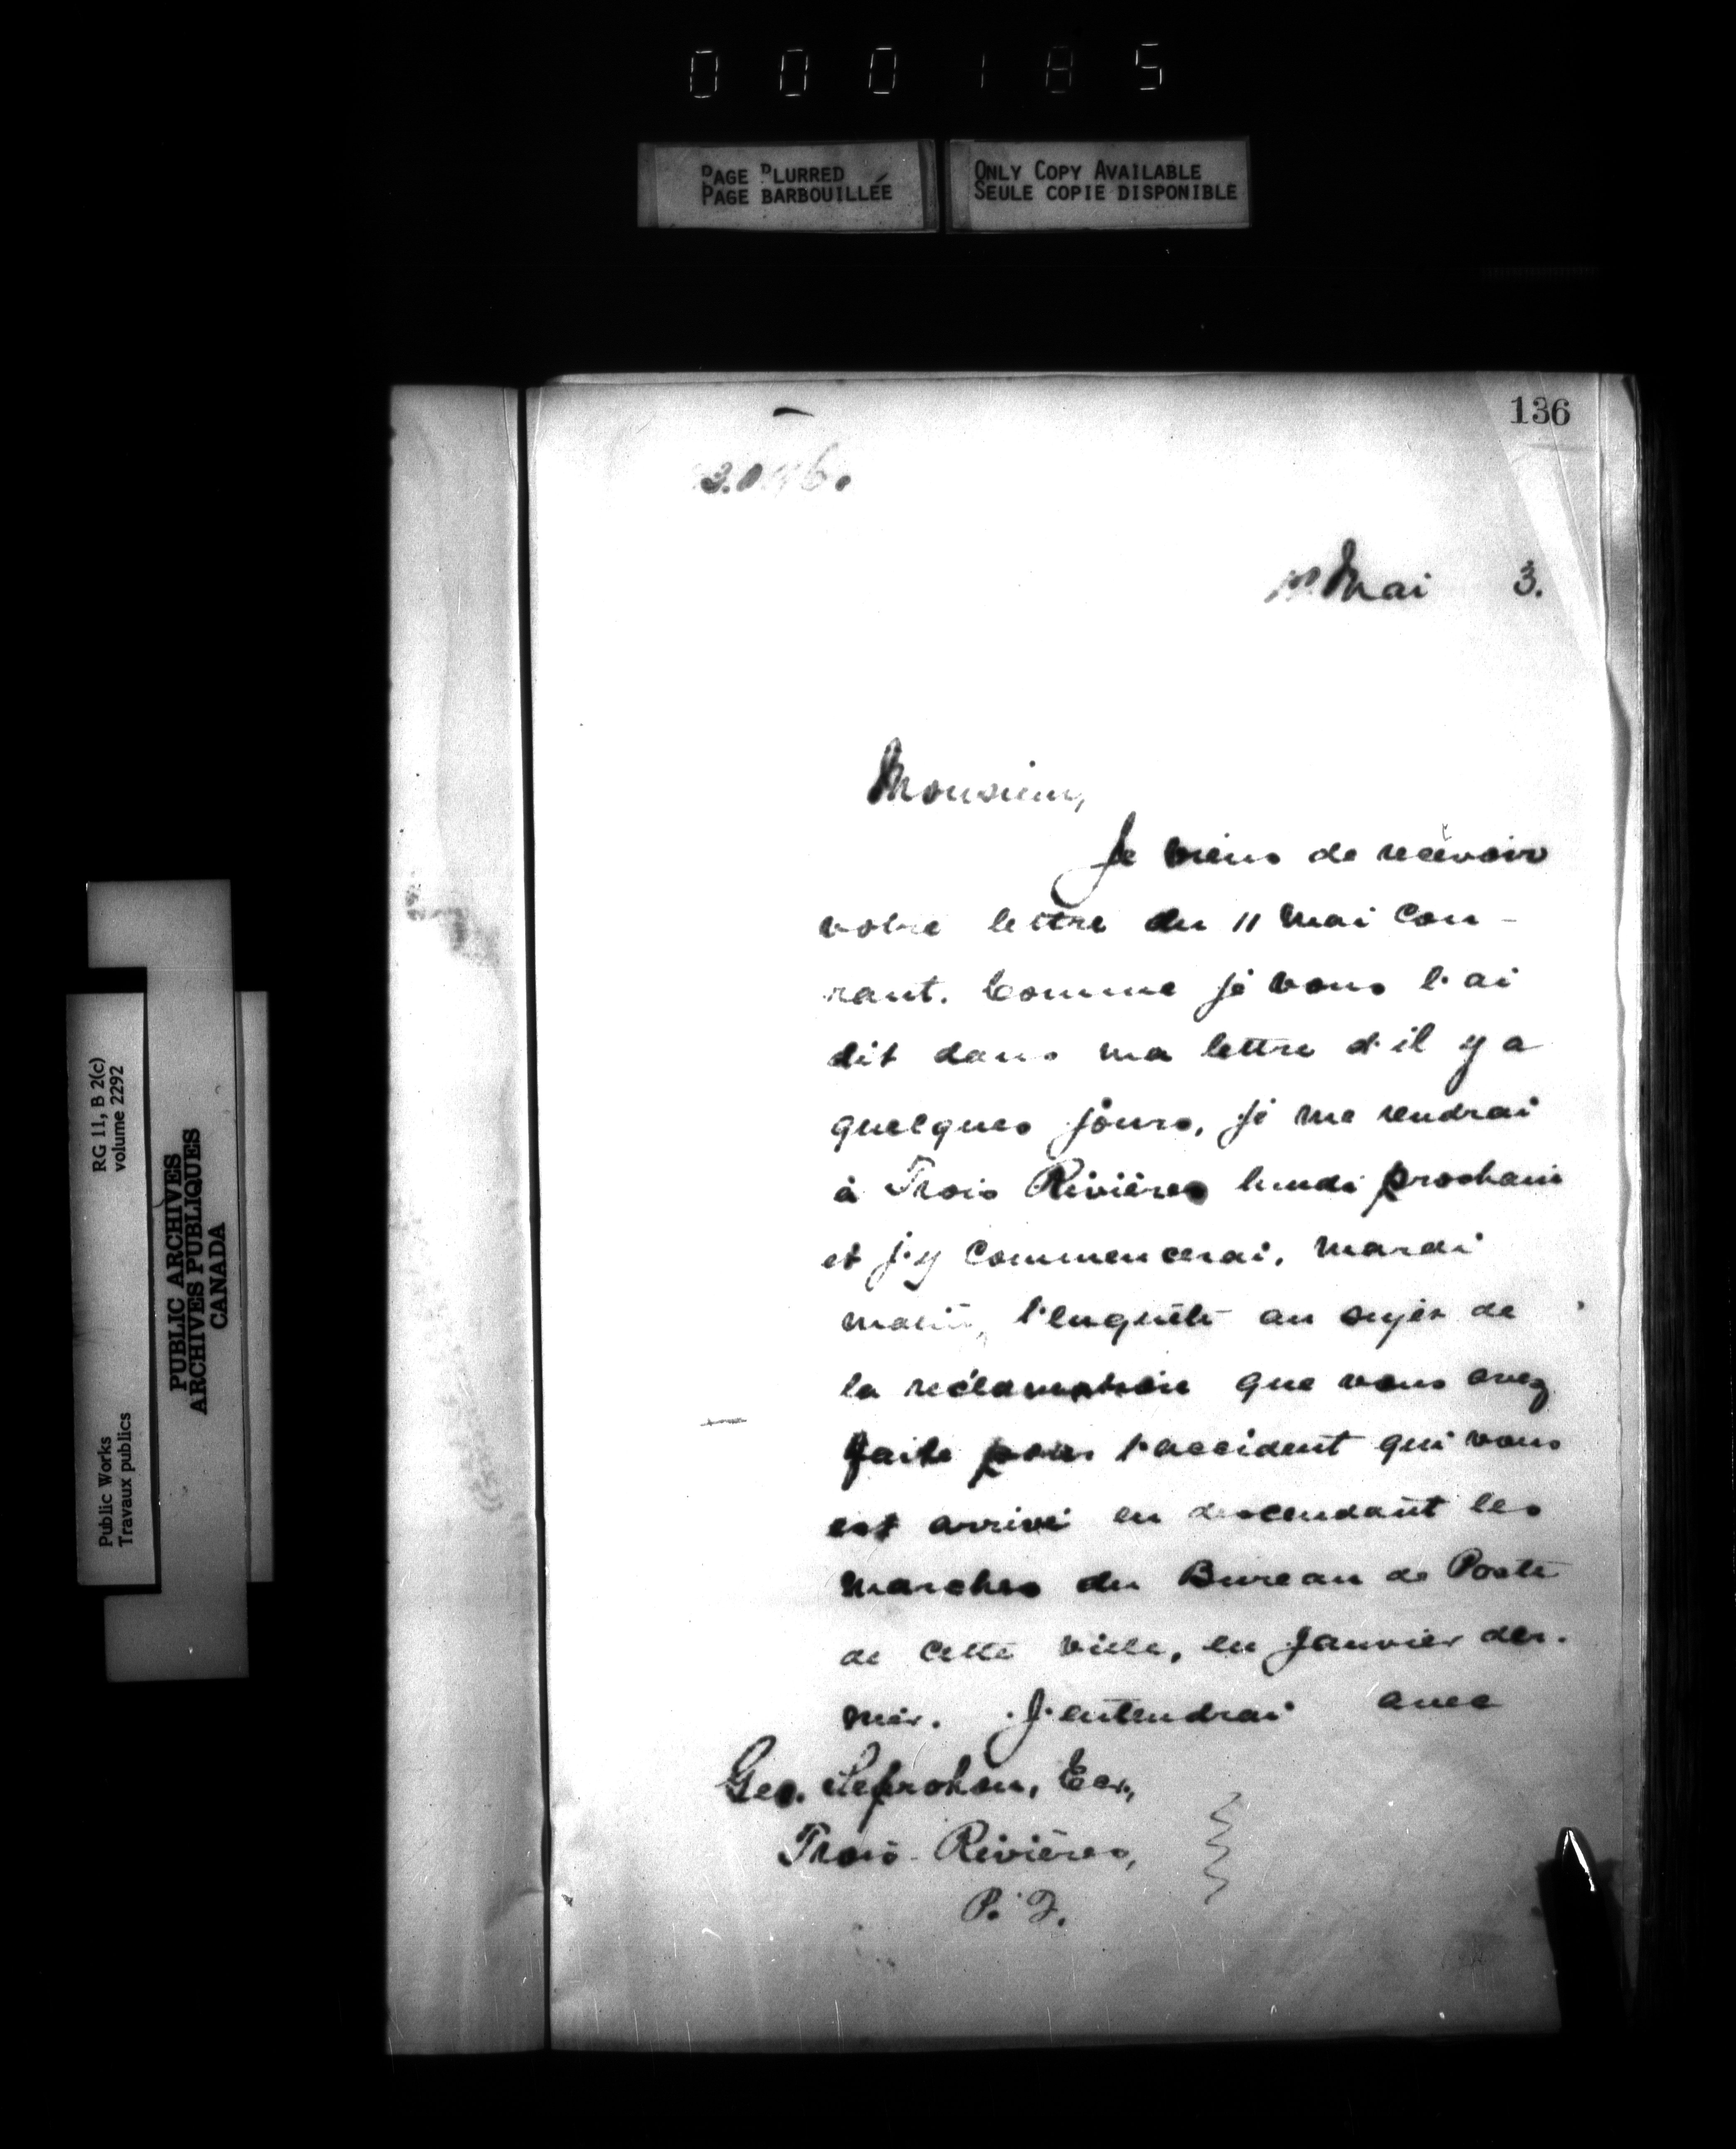 000185
PAGE BLURRED
PAGE BARBOUILLÉE
ONLY COPY AVAILABLE
SEULE COPIE DISPONIBLE
136
Mai 3.
Monsieur,
Je viens de recevoir
votre lettre du 11 Mai Cou-
rant. Comme je vous l'ai
dit dans ma lettre d'il y a
quelques jours, je me rendrai
à Trois Rivières lundi prochain
et j'y commencerai, mardi
matin, l'enquête au sujet de
la réclamation que vous avez
faite pour l'accident qui vous
est arrivé en descendant les
marches du Bureau de Poste
de cette ville, en Janvier der-
nier. J'entendrai avec
Geo. Leprohon, Ecr.,
Trois-Rivières,
P. Q.
RG 11, B 2(c)
volume 2292
Public Works
Travaux publics
PUBLIC ARCHIVES
ARCHIVES PUBLIQUES
CANADA